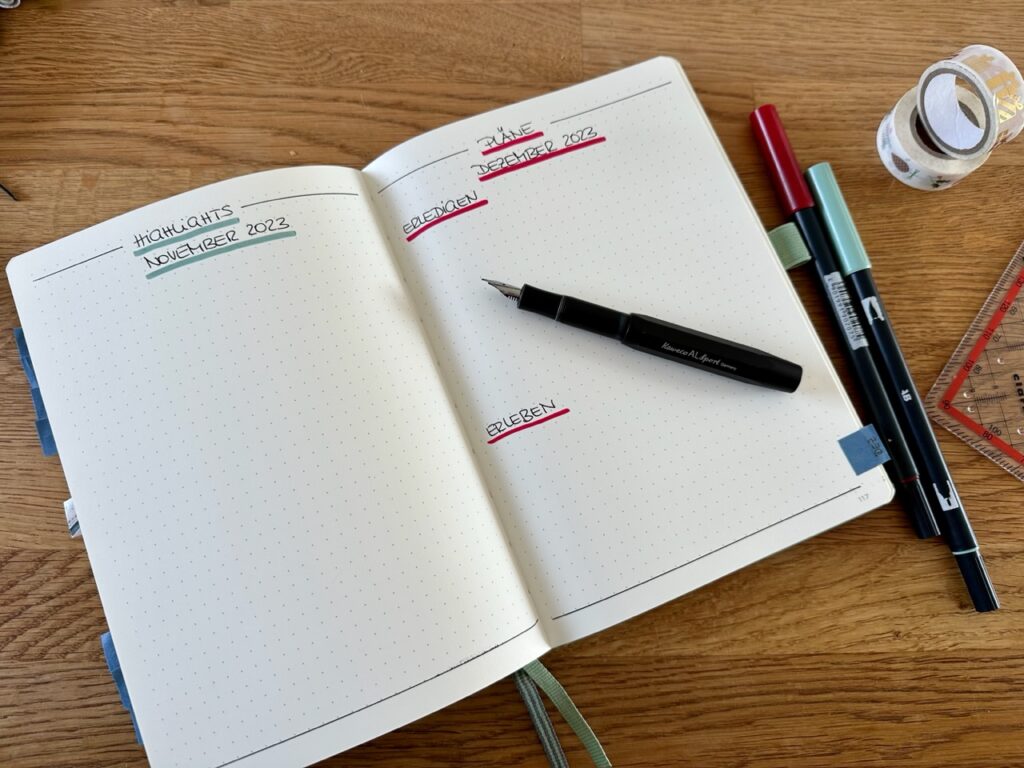 HIGHLIGHTS
NOVEMBER 2023
PLÄNE
DEZEMBER 2023
ERLEDIGEN
Kaweco AL Sport
ERLEBEN
DEZ
117